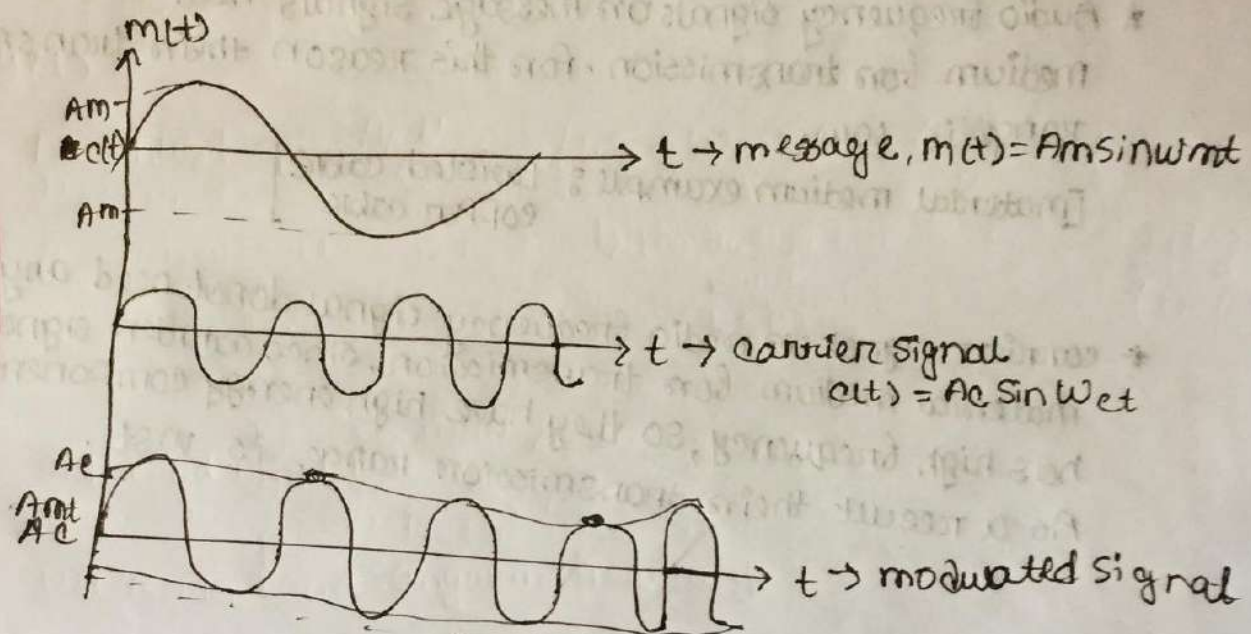 m(t)
Am
c(t)
t → message, m(t) = Am Sin wmt
Am
t → carrier signal
c(t) = Ac Sin Wct
Ac
Amt
AC
t → moduated signal